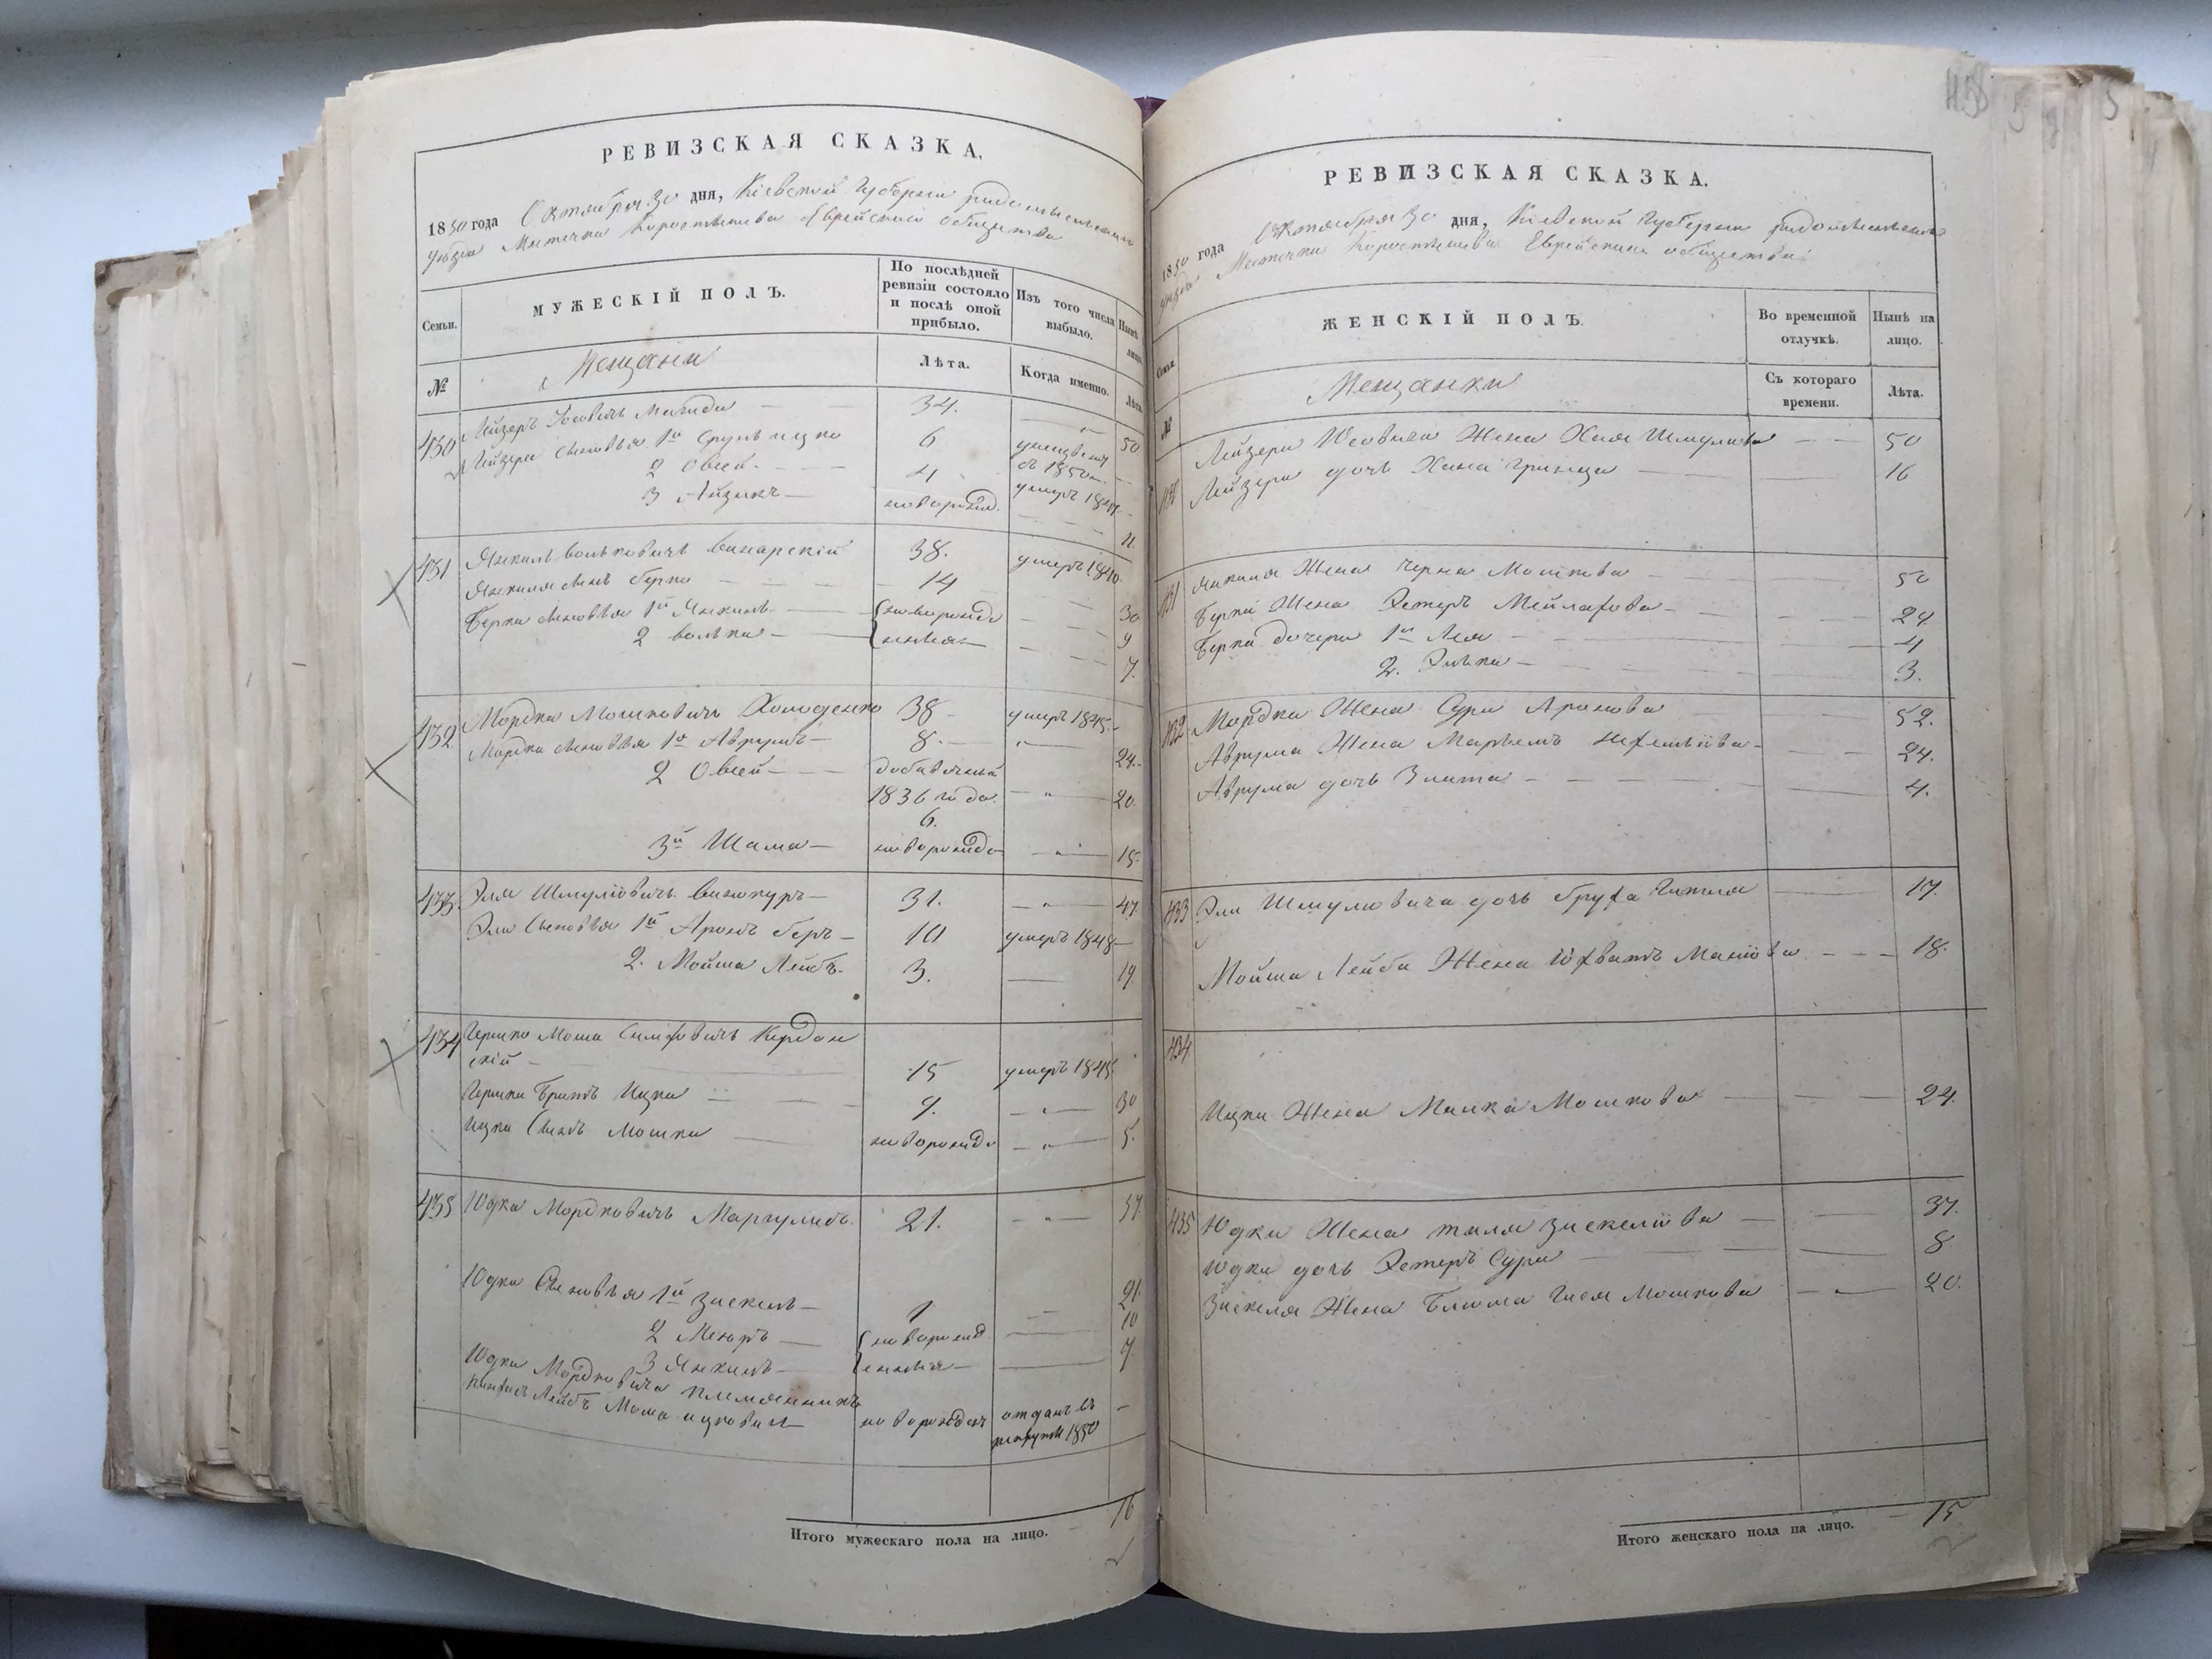 РЕВИЗСКАЯ СКАЗКА.
1850 года Октября 30 дня, Кіевской Губерніи Радомысльскаго
уѣзда Местечка Коростышева Еврейскаго общества
Семьи.
МУЖЕСКІЙ ПОЛЪ.
По послѣдней ревизіи состояло и послѣ оной прибыло.
Изъ того числа выбыло.
Нынѣ на лицо.
№
Мещани
Лѣта.
Когда именно.
Лѣта.
430 Лейзеръ Іосовичъ 34. — 50
Лейзера сыновья 1й Сруль Ицко 6 1850
2 Овсей 4 умеръ 18
3 Айзикъ новорожд. 11
431 Янкель Вольковичъ Винарскій 38. умеръ 1840
Янкеля сынъ Берко 14 30
Берка сыновья 1й Янкель новорожде 9
2 Волько нныя 7.
432 Мордко Мошковичъ Холоденко 38 умеръ 1845
Мордка сыновья 1й Аврумъ 8. 24.
2 Овсей добавочный
1836 года 20.
6.
3й Шама новорожде 15
433. Эля Шмуліовичъ Винокуръ 31. 47.
Эли Сыновья 1й Аронъ Беръ 10 умеръ 1848
2. Мойша Лейбъ 3. 19.
434 Гершко Моша Кердан
скій 15 умеръ 1845
Гершки братъ Ицко 9. 30
Ицки Сынъ Мошко новорожде 5.
435 Юдка Мордковичъ Маргулисъ. 21. 37
Юдки Сыновья 1й Зискель 1 21.
2 Мееръ новорожд 10
3 Янкель енныя 7
Юдки Мордковича племянникъ
Лейбъ Моша Ицковичъ новорожден отданъ въ
рекруты 1850
Итого мужескаго пола на лицо. 16
РЕВИЗСКАЯ СКАЗКА.
1850 года Октября 30 дня, Кіевской Губерніи Радомысльскаго
уезда Местечка Коростышева Еврейскаго общества
Семьи.
ЖЕНСКІЙ ПОЛЪ.
Во временной отлучкѣ.
Нынѣ на лицо.
№
Мещанки
Съ котораго времени.
Лѣта.
430 Лейзера Іосовича Жена Хая Шмулева 50
Лейзера дочь Хана Гринца 16
431 Янкеля Жена Черна Мошкова 50
Берки Жена Эстеръ Мейлахова 24
Берки дочери 1я Лея 4
2. Элька 3.
432 Мордка Жена Сура Аронова 52.
Аврума Жена Марьемъ 24.
Аврума дочь Злата 4.
433 Эли Шмуліовича дочь Бруха Гитля 17.
Мойша Лейба Жена 18.
434
Ицки Жена Малка Мошкова 24.
435 Юдки Жена Зискеліова 37.
Юдки дочь Эстеръ Сура 8
Зискеля Жена Блюма Гися Мошкова 20.
Итого женскаго пола на лицо. 15